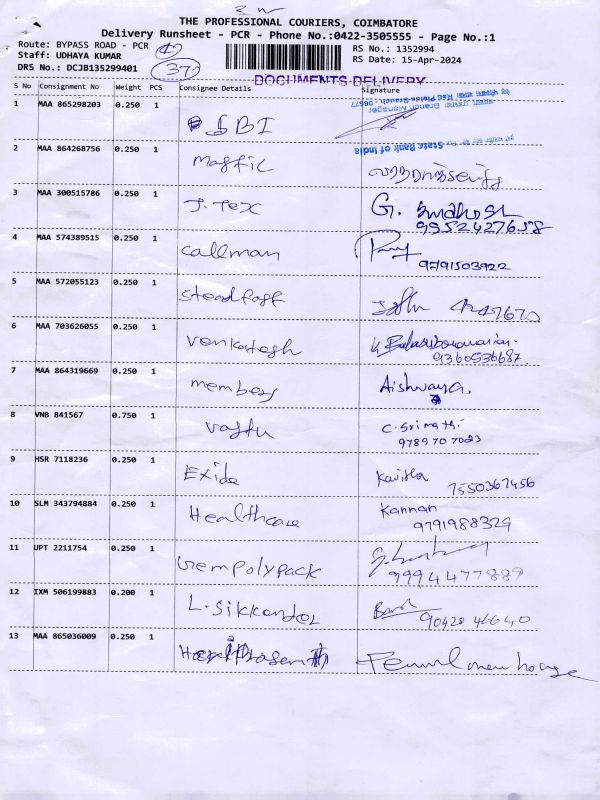 THE PROFESSIONAL COURIERS, COIMBATORE
Delivery Runsheet - PCR - Phone No.:0422-3505555 - Page No.:1
Route: BYPASS ROAD - PCR
RS No.: 1352994
Staff: UDHAYA KUMAR
RS Date: 15-Apr-2024
DRS No.: DCJB135299401
37
DOCUMENTS DELIVERY
S No Consignment No Weight PCS Consignee Details Signature
1 MAA 865298203 0.250 1 SBI
Branch Manager
State Bank of India
2 MAA 864268756 0.250 1 Maffic
3 MAA 300515786 0.250 1 J. Tex G.
9952427658
4 MAA 574389515 0.250 1 Callman
9791503922
5 MAA 572055123 0.250 1 Steadfast
6 MAA 703626055 0.250 1 Venkatesh
9360536687
7 MAA 864319669 0.250 1 members Aishwarya.
8 VNB 841567 0.750 1 Vastu C. Srimathi
9789707023
9 HSR 7118236 0.250 1 Exide Kavitha
7550367456
10 SLM 343794884 0.250 1 Healthcare Kannan
9791988329
11 UPT 2211754 0.250 1 Gempolypack
9994477889
12 IXM 506199883 0.200 1 L. Sikkander
90428 46640
13 MAA 865036009 0.250 1